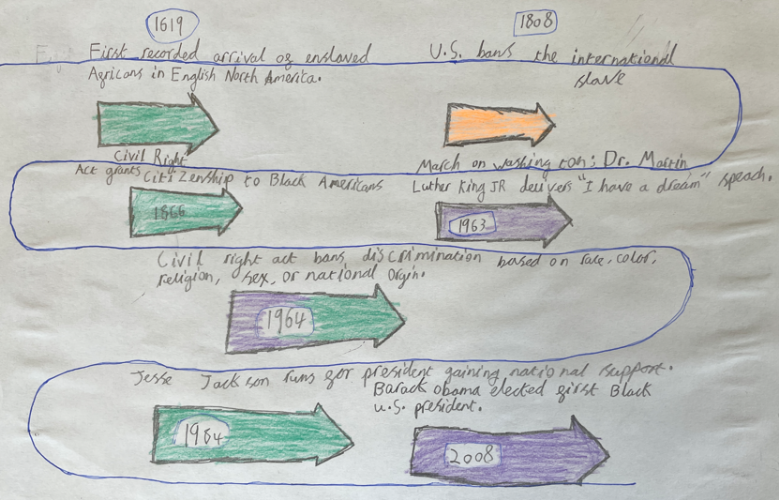 1619
1808
First recorded arrival of enslaved
Africans in English North America.
U.S. bans the international
slave
Civil Right
Act grants Citizenship to Black Americans
1866
March on washing ton; Dr. Martin
Luther King JR delivers "I have a dream" speach.
1963
Civil right act bans discrimination based on rate, color,
religion, sex, or national Orgin.
1964
Jesse Jackson runs for president gaining national support.
1984
Barack obama elected first Black
u.S. president.
2008